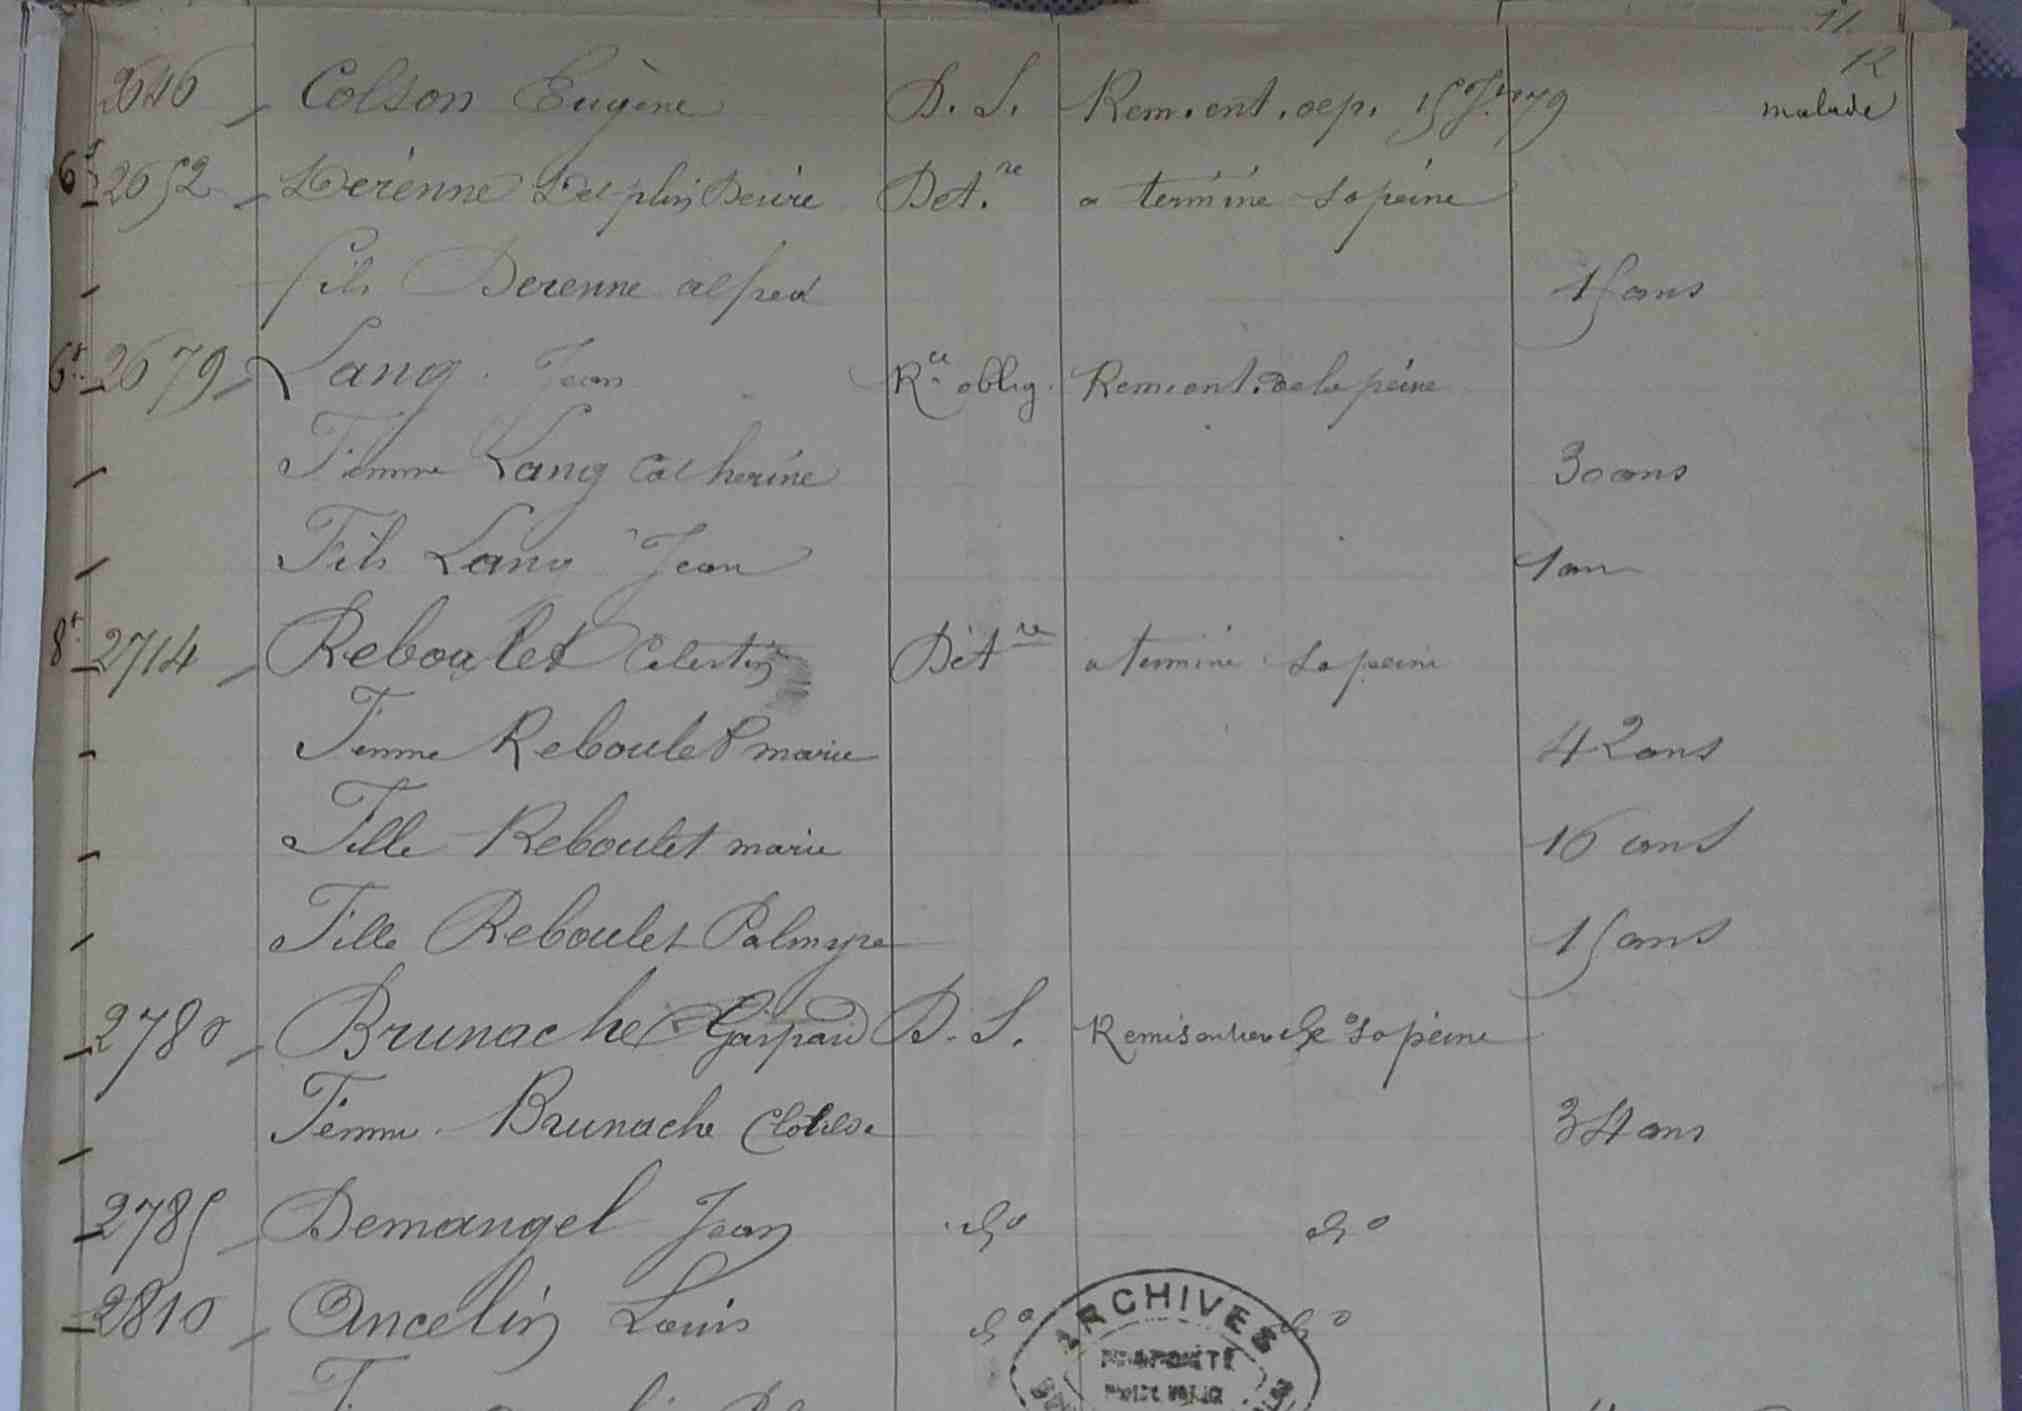 11
12
2646 Colson Eugène D. S. Rem. ent. dep. 15 Jer 79 malade
6t 2652 Derenne Delphin Desiré Det.re a terminé sa peine
fils Derenne alfred 15 ans
6t 2679 Lang Jean Rce oblig. Rem. ent. de la peine
Femme Lang Catherine 30 ans
Fils Lang Jean 1 an
8t 2714 Reboulet Celestin Dét re a terminé sa peine
Femme Reboulet marie 42 ans
Fille Reboulet marie 16 ans
Fille Reboulet Palmyre 15 ans
2780 Brunache Gaspard D. S. Remis entière de sa peine
Femme Brunache Clotilde 34 ans
2785 Demangel Jean do do
2810 Ancelin Louis do do
ARCHIVES